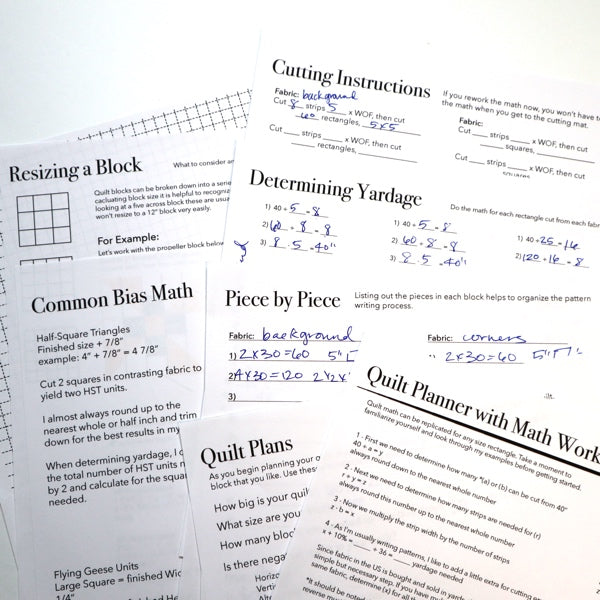 Cutting Instructions
Fabric: background
Cut 8 strips 5 x WOF, then cut
60 rectangles, 5x5
Cut ___ strips ___ x WOF, then cut
___ rectangles, ___
If you rework the math now, you won't have to
the math when you get to the cutting mat.
Fabric:
Cut ___ strips ___ x WOF, then cut
___ squares, ___
Cut ___ strips ___ x WOF, then cut
Resizing a Block
What to consider
Quilt blocks can be broken down into a
block size it is helpful to
looking at five across block these are
won't resize to a 12" block very easily.
For Example:
Let's work with the propeller block below
Determining Yardage
Do the math for each rectangle cut from each
1) 40÷5=8
2) 60÷8=8
3) 8·5=40"
1) 40÷5=8
2) 60÷8=8
3) 8·5=40"
1) 40÷25=16
2) 120÷16=8
Common Bias Math
Half-Square Triangles
Finished size + 7/8"
example: 4" + 7/8" = 4 7/8"
Cut 2 squares in contrasting fabric to
yield two HST units.
I almost always round up to the
nearest whole or half inch and trim
down for the best results in my
When determining yardage, I
the total number of HST units
by 2 and calculate for the
needed.
Flying Geese Units
Large Square = finished
1/4"
Piece by Piece
Listing out the pieces in each block helps to organize the pattern
writing process.
Fabric: background
1) 2x30=60 5"
2) 4x30=120
3)
Fabric: corners
2x30=60 5"
Quilt Plans
As you begin planning your
block that you like. Use
How big is your
What size are you
How many
Is there
Quilt Planner with Math
Quilt math can be replicated for any size rectangle. Take a moment to
familiarize yourself and look through my examples before getting started.
1 - First we need to determine how many *(a) or (b) can be cut from 40"
40 ÷ a = y
always round down to the nearest whole number
2 - Next we need to determine how many strips are needed for (r)
r ÷ y = z
always round this number up to the nearest whole number
3 - Now we multiply the strip width by the number of strips
z · b = x
4 - As I'm usually writing patterns, I like to add a little extra for cutting
x + 10% = ____ ÷ 36 = ____ yardage needed
Since fabric in the US is bought and sold in
simple but necessary step. If you have
same fabric, determine (x) for all
*It should be noted